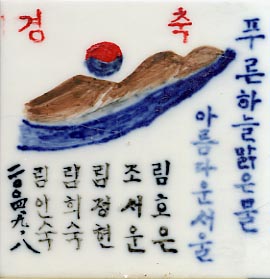 경축
푸른하늘맑은물
아름다운서울
림효은
조서운
림정현
림희숙
림인숙
二〇〇四九.八